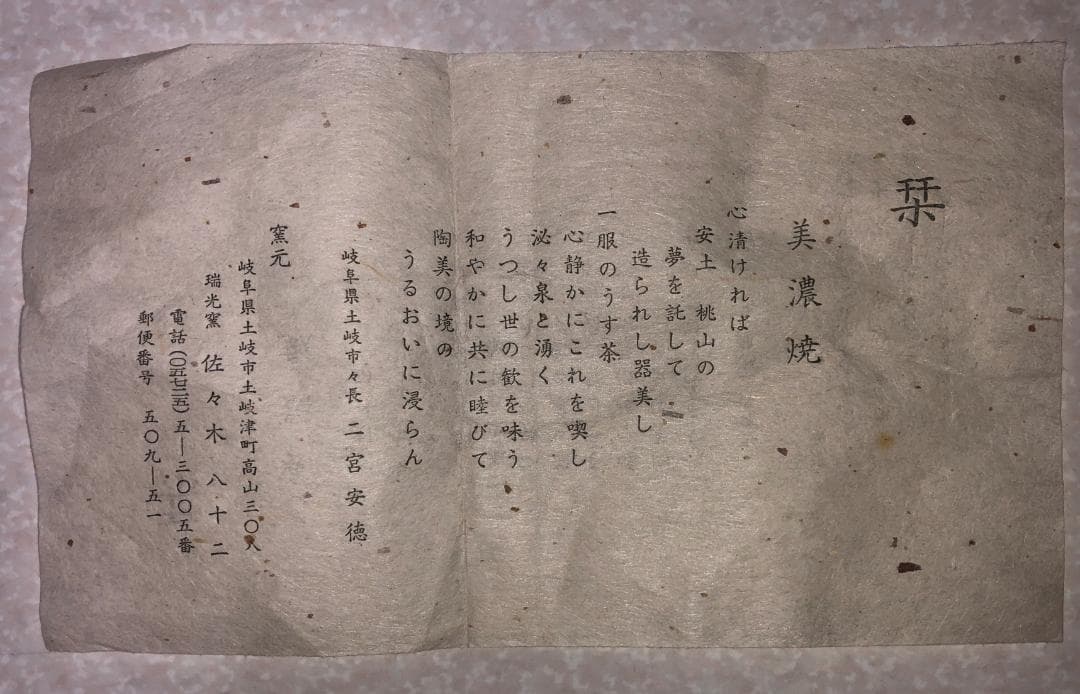 栞
美濃焼
心清ければ
安土 桃山の
夢を託して
造られし器美し
一服のうす茶
心静かにこれを喫し
泌々泉と湧く
うつし世の歓を味う
和やかに共に睦びて
陶美の境の
うるおいに浸らん
岐阜県土岐市々長 二宮安徳
窯元
岐阜県土岐市土岐津町高山三〇八
瑞光窯 佐々木八十二
電話(〇五七二五)五―三〇〇五番
郵便番号 五〇九―五一